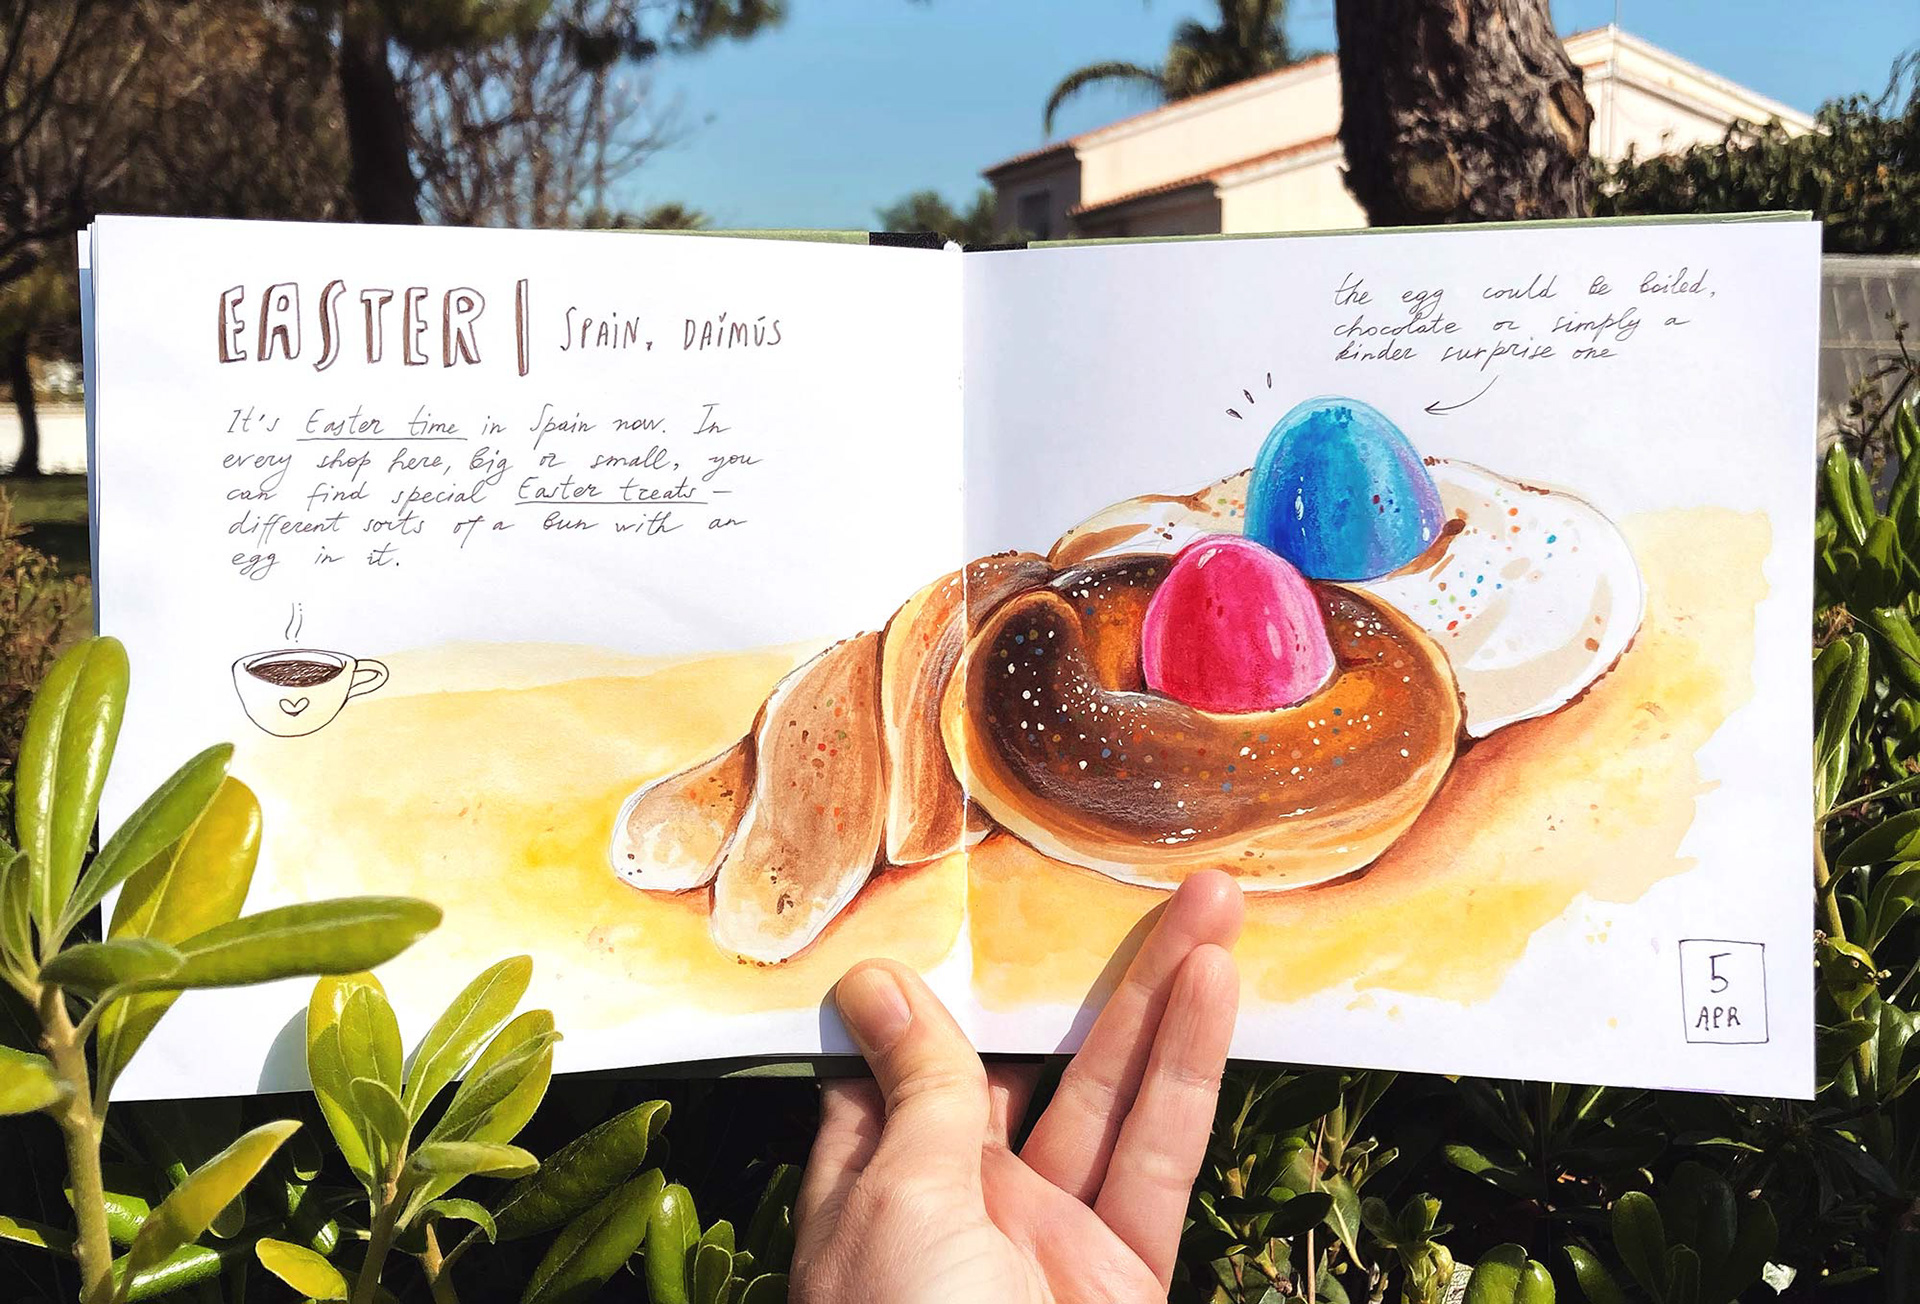 EASTER | SPAIN, DAIMÚS
It's Easter time in Spain now. In
every shop here, big or small, you
can find special Easter treats –
different sorts of a bun with an
egg in it.
the egg could be boiled,
chocolate or simply a
kinder surprise one
5
APR